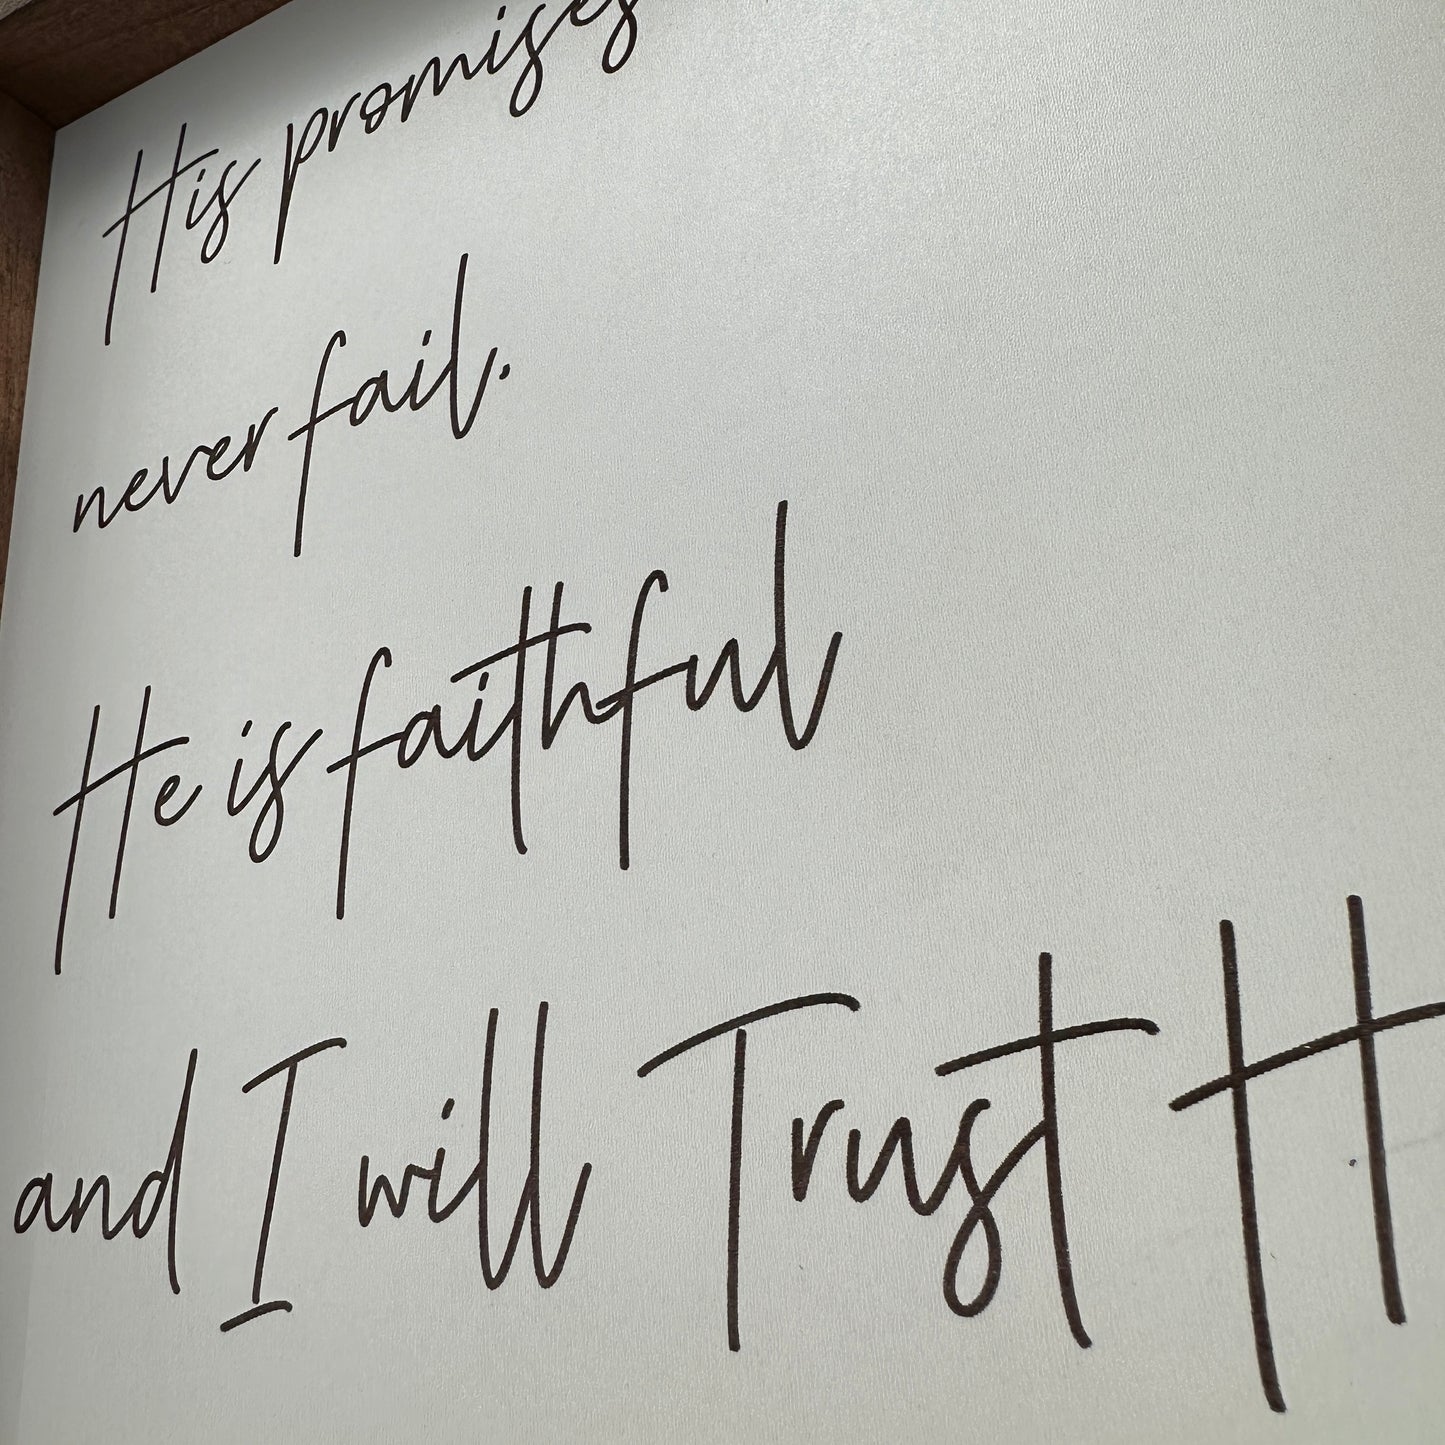 His promises
never fail.
He is faithful
and I will Trust H